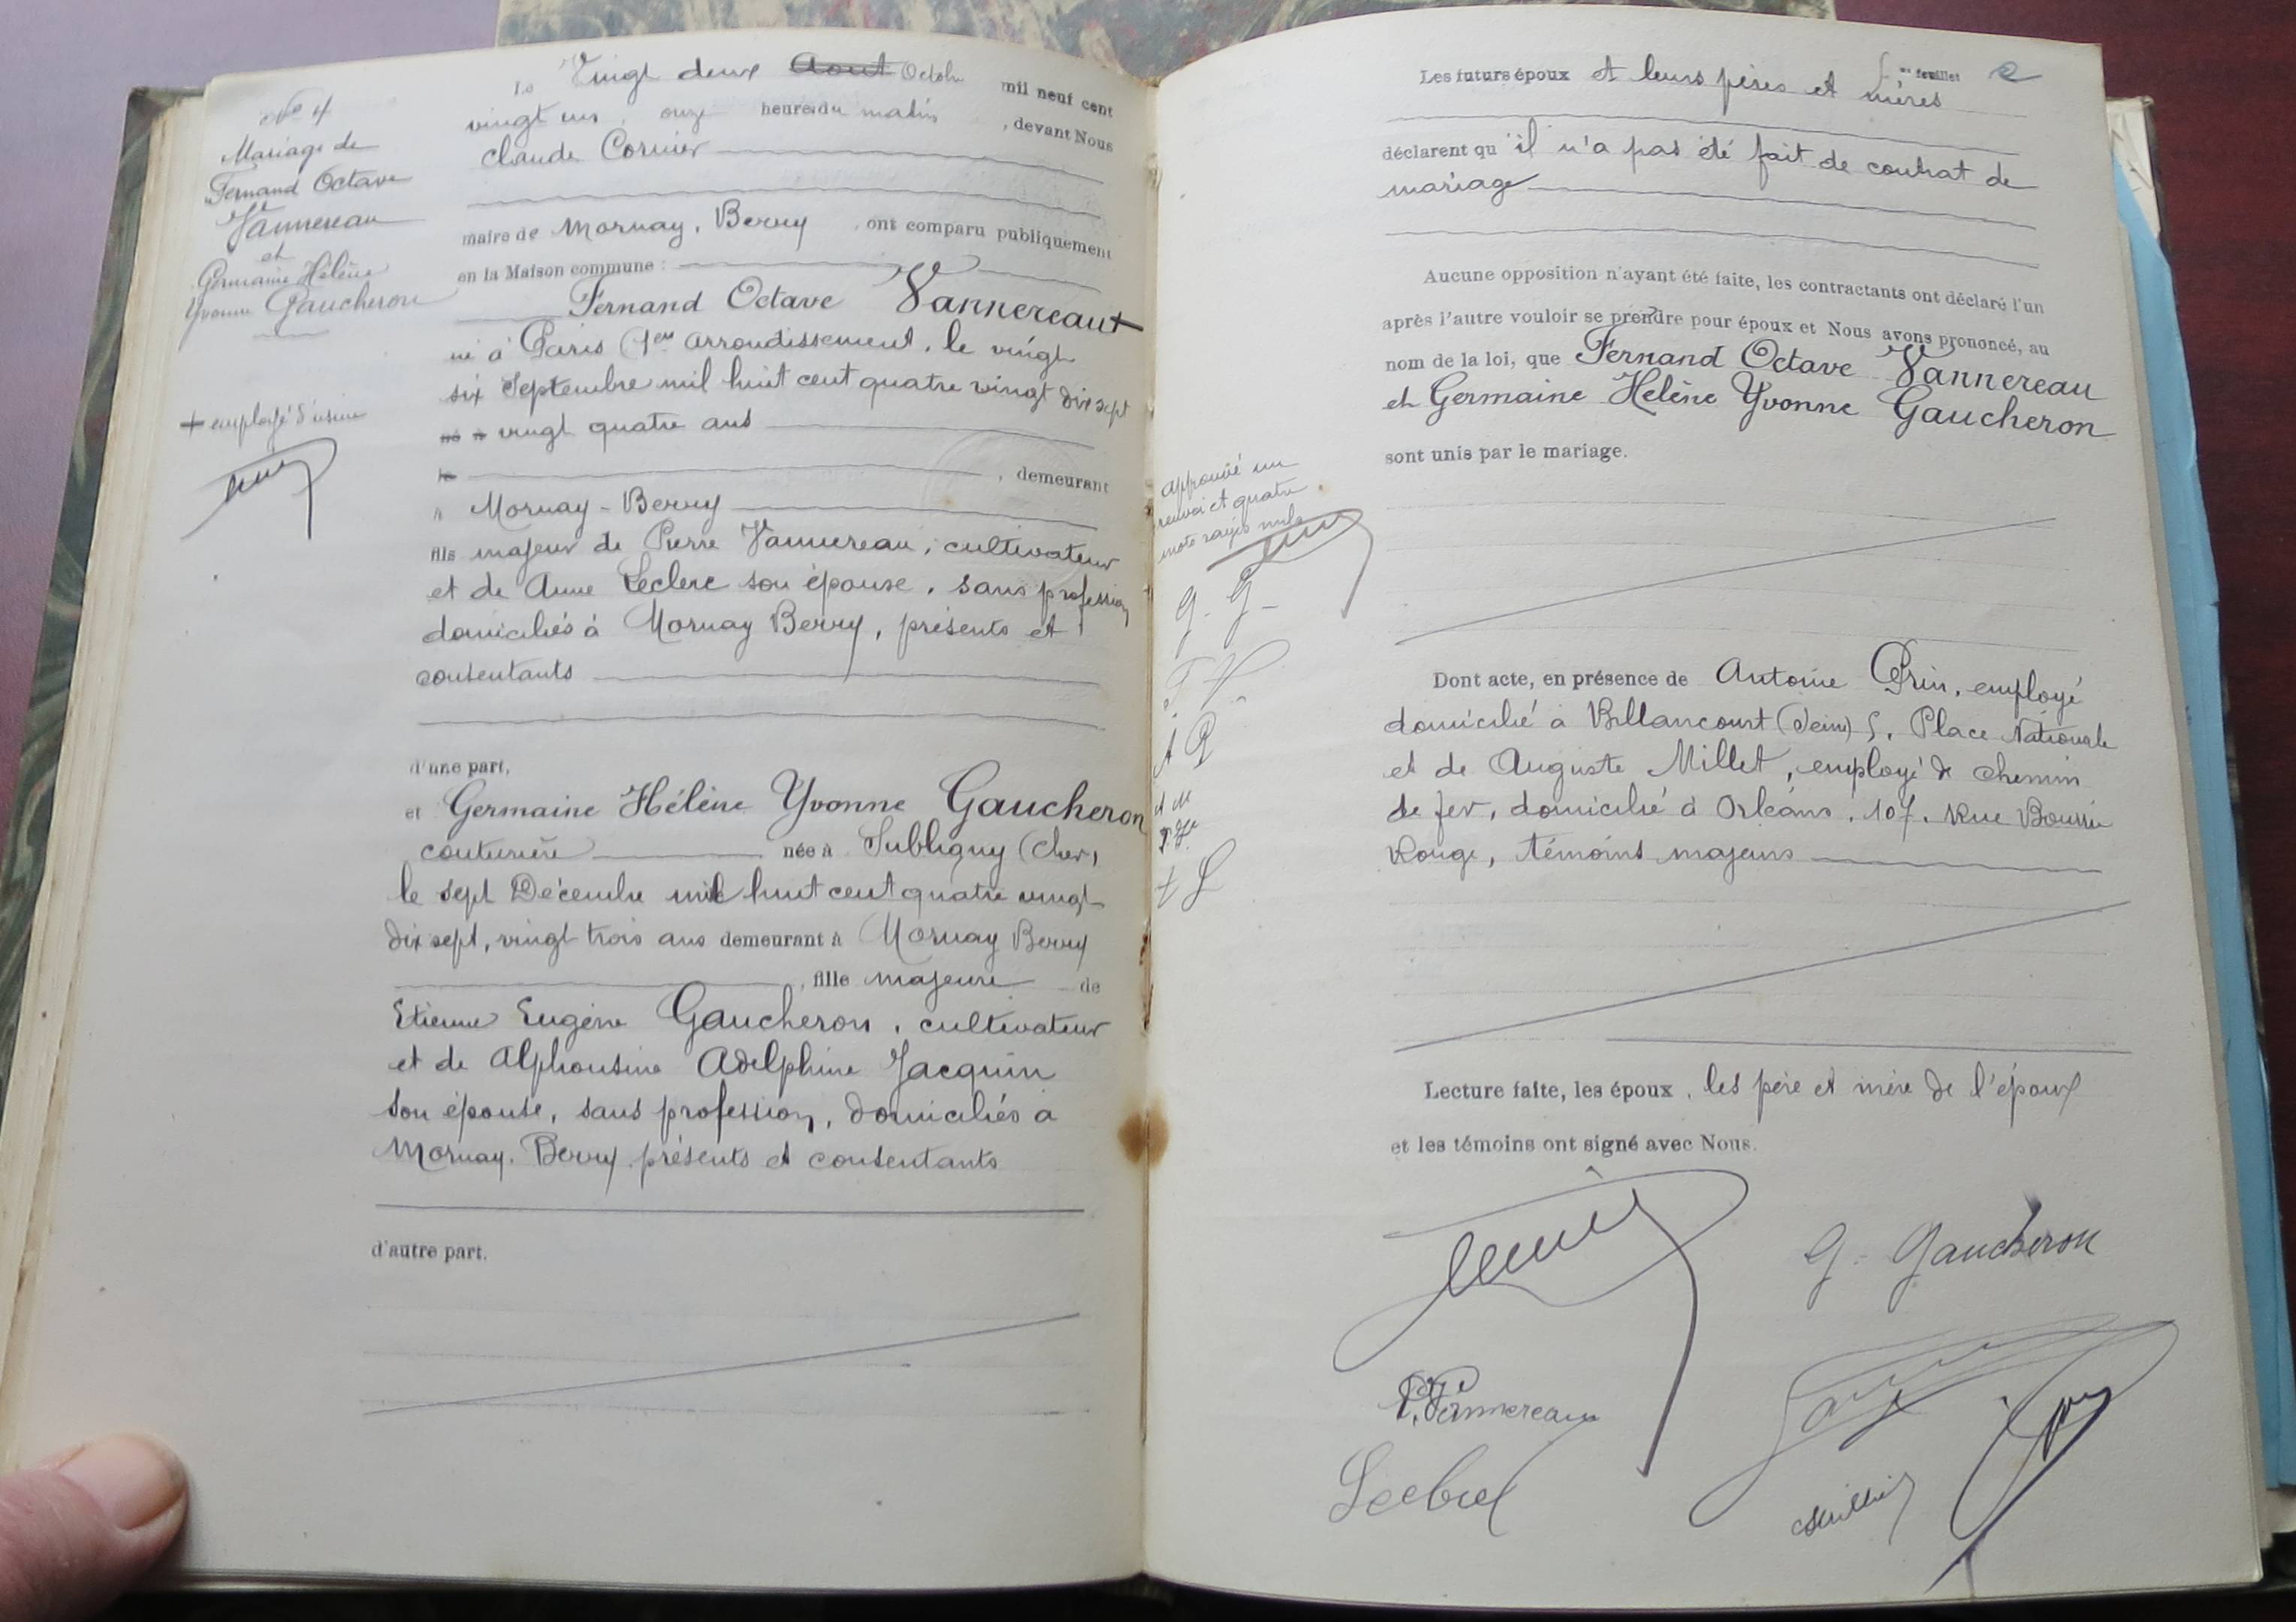 No 4
Mariage de
Fernand Octave
Vannereau
et
Germaine Hélène
Yvonne Gaucheron
+ employé d'usine
Le Vingt deux Aout Octobre mil neuf cent
vingt un, onze heures du matin, devant Nous
Claude Cornier
maire de Mornay-Berry, ont comparu publiquement
en la Maison commune :
Fernand Octave Vannereau +
né à Paris (1er arrondissement, le vingt
six Septembre mil huit cent quatre vingt dix sept
vingt quatre ans
le , demeurant
à Mornay-Berry
fils majeur de Pierre Vannereau, cultivateur
et de Anne Leclerc son épouse, sans profession
domiciliés à Mornay Berry, présents et
consentants
d'une part,
et Germaine Hélène Yvonne Gaucheron
couturière née à Subligny (Cher)
le sept Décembre mil huit cent quatre vingt
dix sept, vingt trois ans demeurant à Mornay Berry
, fille majeure de
Etienne Eugène Gaucheron, cultivateur
et de Alphonsine Adelphine Jacquin
son épouse, sans profession, domiciliés à
Mornay-Berry présents et consentants
d'autre part.
feuillet 2
Les futurs époux et leurs pères et mères
déclarent qu'il n'a pas été fait de contrat de
mariage
Aucune opposition n'ayant été faite, les contractants ont déclaré l'un
après l'autre vouloir se prendre pour époux et Nous avons prononcé, au
nom de la loi, que Fernand Octave Vannereau
et Germaine Helène Yvonne Gaucheron
sont unis par le mariage.
approuvé un
renvoi et quatre
mots rayés nuls
G. G
F V
A P
Dont acte, en présence de Antoine Prin, employé
domicilié à Billancourt (Seine) 5, Place Nationale
et de Auguste Millet, employé de chemin
de fer, domicilié à Orléans, 107, Rue Bourrie
Rouge, témoins majeurs
Lecture faite, les époux, les père et mère de l'époux
et les témoins ont signé avec Nous.
G. Gaucheron
Vannereau